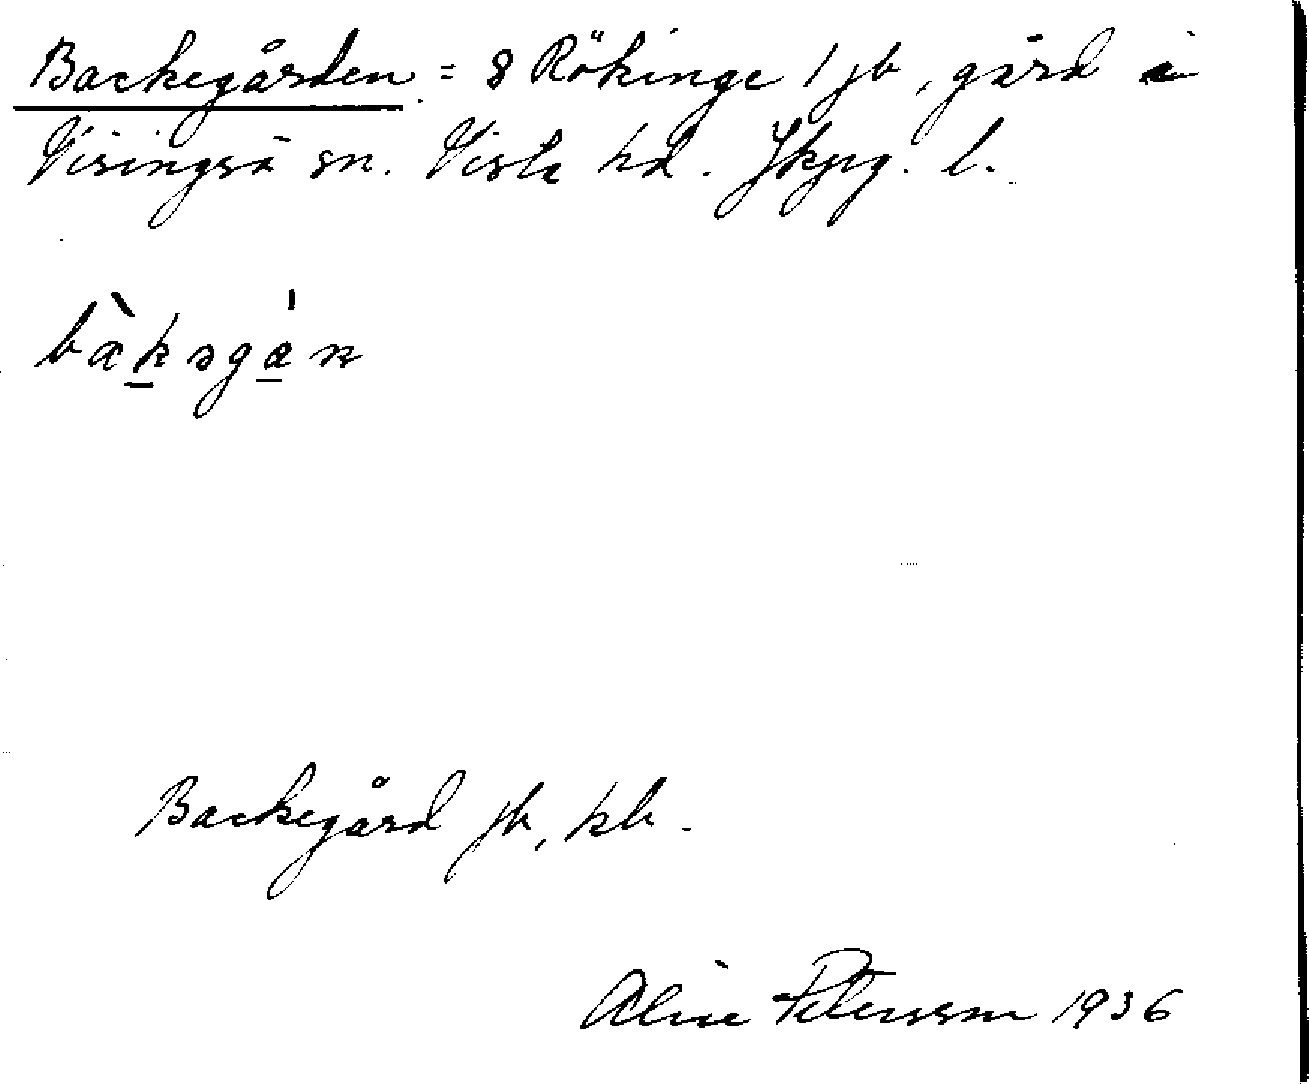 Backegården = 8 Rökinge 1 jb, gård i
Visingsö sn. Vista hd. Jkpg. l.
bàkəgán
Backegård jb, kb.
Alice Petersson 1936